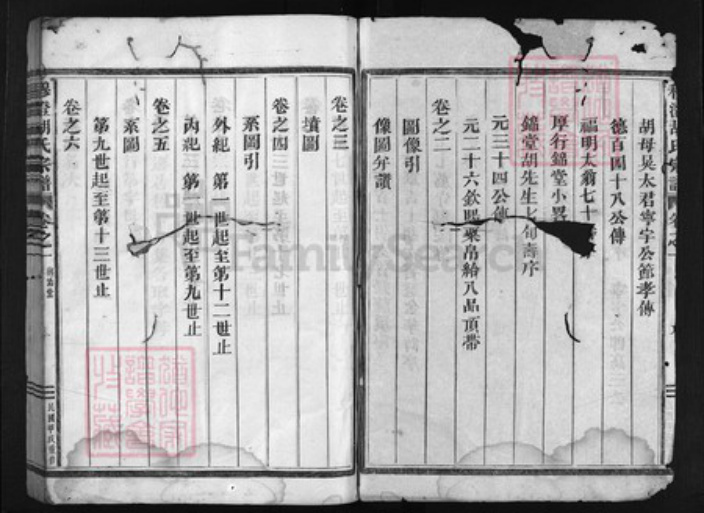 胡母晃太君寧宇公節孝傳
德百四十八公傳
福明太翁七十
厚行錦堂小畧
錦堂胡先生七旬壽序
元三十四公傳
元二十六欽賜粟帛給八品頂帶
卷之二
圖像引
像圖弁讚
卷之三
墳圖
卷之四
系圖引
外紀 第一世起至第十二世止
內紀 第一世起至第九世止
卷之五
系圖
第九世起至第十三世止
卷之六
胡氏宗譜 卷之一
民國甲戌重修
FamilySearch